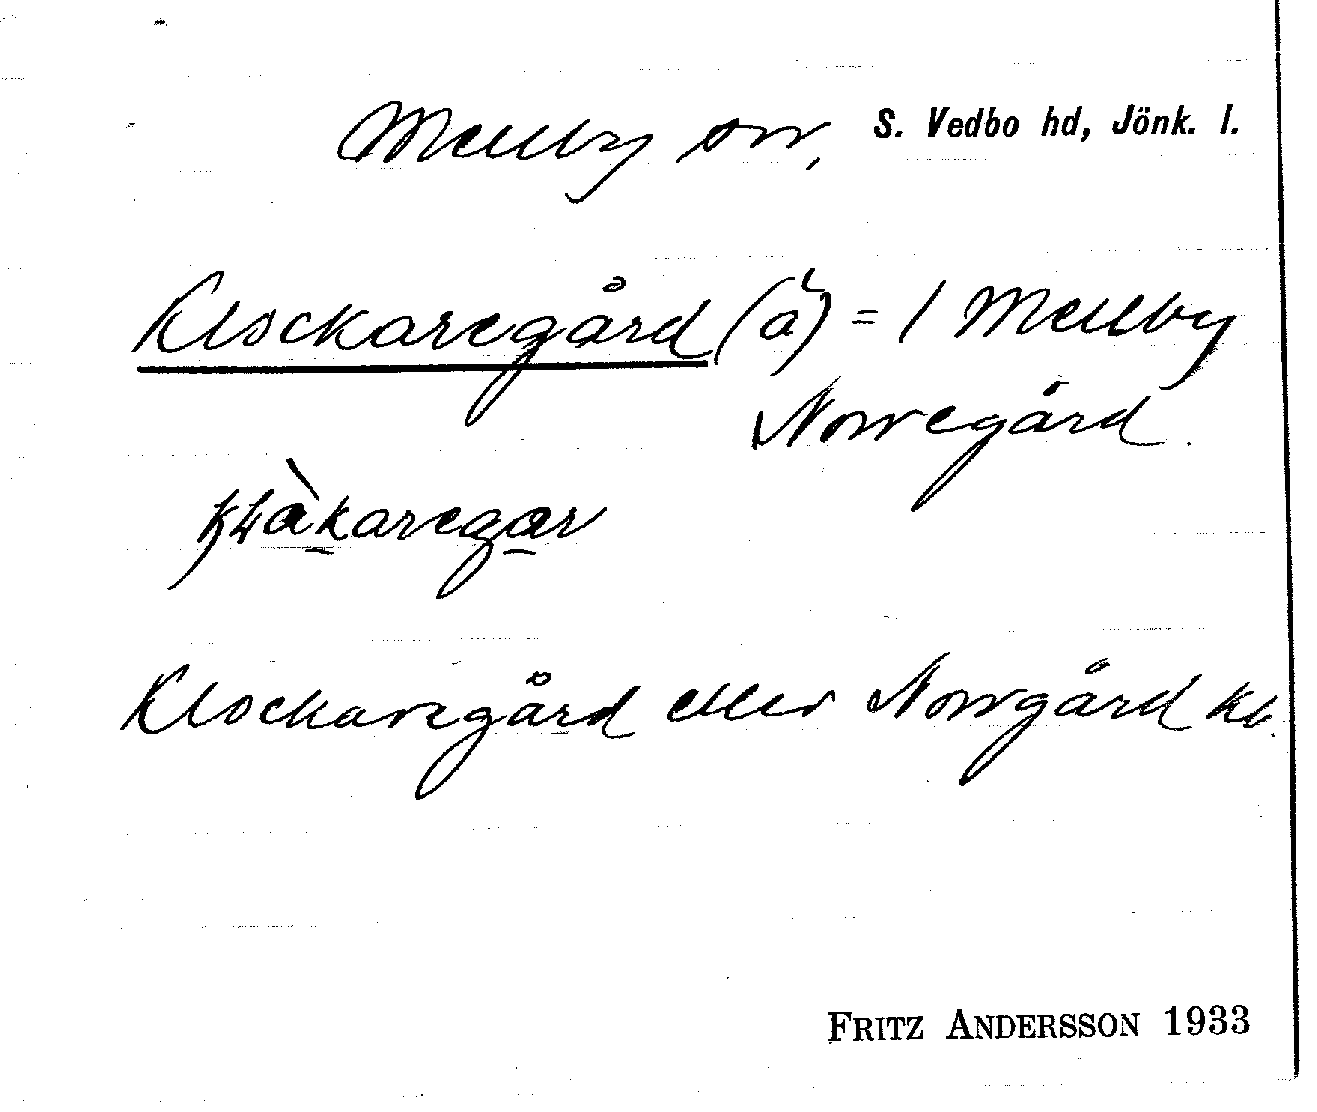 Mellby sn, S. Vedbo hd, Jönk. l.
Klockaregård (å) = 1 Mellby
Norregård.
klàkaregar
Klockaregård eller Norrgård kb.
FRITZ ANDERSSON 1933